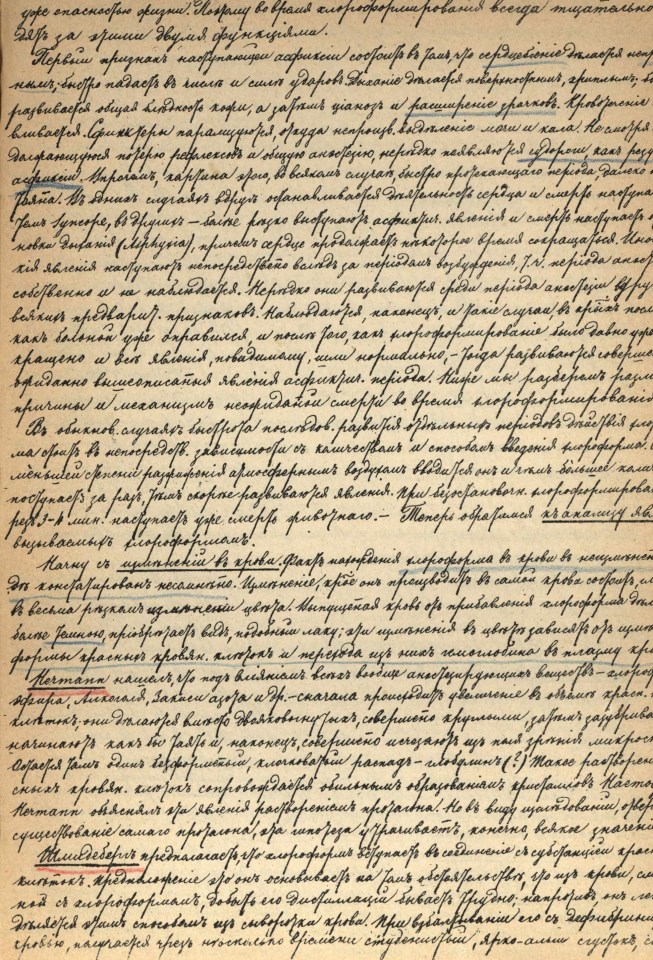 уже опасностью жизни. Поэтому во время хлороформированія всегда тщательно
дятъ за этими двумя функціями.
Первый признакъ наступающей асфиксіи состоитъ въ томъ, что сердцебіеніе дѣлается непр
нымъ; быстро падаетъ въ числѣ и силѣ ударовъ. Дыханіе дѣлается поверхностнымъ, хриплымъ;
развивается общая блѣдность кожи, а затѣмъ ціанозъ и расширеніе зрачковъ. Кровотеченіе
вливается. Сфинктеры парализуются, откуда непроизв. выдѣленіе мочи и кала. Не смотря
должающуюся потерю рефлексовъ и общую анэстезію, нерѣдко появляются судороги, какъ резу
асфиксіи. Впрочемъ, картина этого, во всякомъ случаѣ, быстро протекающаго періода далеко
Въ однихъ случаяхъ вдругъ останавливается дѣятельность сердца и смерть наступа
темъ Syncope, въ другихъ – болѣе рѣзко выступаютъ асфиктич. явленія и смерть наступаетъ о
новки дыханія (Asphyxia), причемъ сердце продолжаетъ нѣкоторое время сокращаться. Иног
кія явленія наступаютъ непосредственно вслѣдъ за періодомъ возбужденія, т. ч. періода анэст
собственно и не наблюдается. Нерѣдко они развиваются среди періода анэстезіи вдру
всякихъ предварит. признаковъ. Наблюдаются, наконецъ, и такіе случаи, въ котор. посл
какъ больной уже оправился, и послѣ того, какъ хлороформированіе было давно уже
кращено и всѣ явленія, повидимому, шли нормально, – тогда развиваются соверше
ожиданно вышеописанныя явленія асфиктич. періода. Ниже мы разберемъ разл
причины и механизмъ неожиданной смерти во время хлороформированія
Въ обыкнов. случаяхъ быстрота послѣдов. развитія отдѣльныхъ періодовъ дѣйствія хлор
ма стоитъ въ непосредств. зависимости съ качествомъ и способомъ введенія хлороформа.
меньшей степени разжиженія атмосфернымъ воздухомъ вводится онъ и чѣмъ большее коли
поступаетъ за разъ, тѣмъ скорѣе развиваются явленія. При безостановочн. хлороформирова
резъ 3-4 мин. наступаетъ уже смерть животнаго. – Теперь обратимся къ анализу явл
вызываемыхъ хлороформомъ.
Начну съ измѣненій въ крови. Фактъ нахожденія хлороформа въ крови въ неизмѣнном
дѣ констатированъ несомнѣнно. Измѣненіе, кот. онъ производитъ въ самой крови состоитъ,
въ весьма рѣзкомъ измѣненіи цвѣта. Выпущенная кровь отъ прибавленія хлороформа дѣла
болѣе темною, пріобрѣтаетъ видъ, подобный лаку; эти измѣненія въ цвѣтѣ зависятъ отъ измѣн
формы красныхъ кровян. клѣтокъ и перехода изъ нихъ гемоглобина въ плазму кро
Hermann нашелъ, что подъ вліяніемъ всѣхъ вообще анэстезирующихъ веществъ – хлорофо
эфира, Алкоголя, Закиси азота и др. – сначала происходитъ увеличеніе въ объемѣ красн.
клѣтокъ; они дѣлаются вмѣсто двояковогнутыхъ, совершенно круглыми, затѣмъ зазубрива
начинаютъ какъ бы таять и, наконецъ, совершенно исчезаютъ изъ поля зрѣнія микроск
Остается тамъ одинъ безформенный, клочковатый распадъ – глобулинъ (?) Такое растворен
сныхъ кровян. клѣтокъ сопровождается обильнымъ образованіемъ кристалловъ
Hermann объяснялъ эти явленія раствореніемъ протагона. Но въ виду изслѣдованій,
существованіе самаго протагона, эта гипотеза утрачиваетъ, конечно, всякое значені
Шмидебергъ предполагаетъ, что хлороформъ вступаетъ въ соединеніе съ субстанціей крас
клѣтокъ. Предположеніе это онъ основываетъ на томъ обстоятельствѣ, что изъ крови,
ной съ хлороформомъ, добыть его дистилляціей бываетъ трудно; напротивъ, онъ ле
дѣляется этимъ способомъ изъ сыворотки крови. При взбалтываніи его съ дефибрини
кровью, получается чрезъ нѣсколько времени студенистый, ярко-алый сгустокъ,